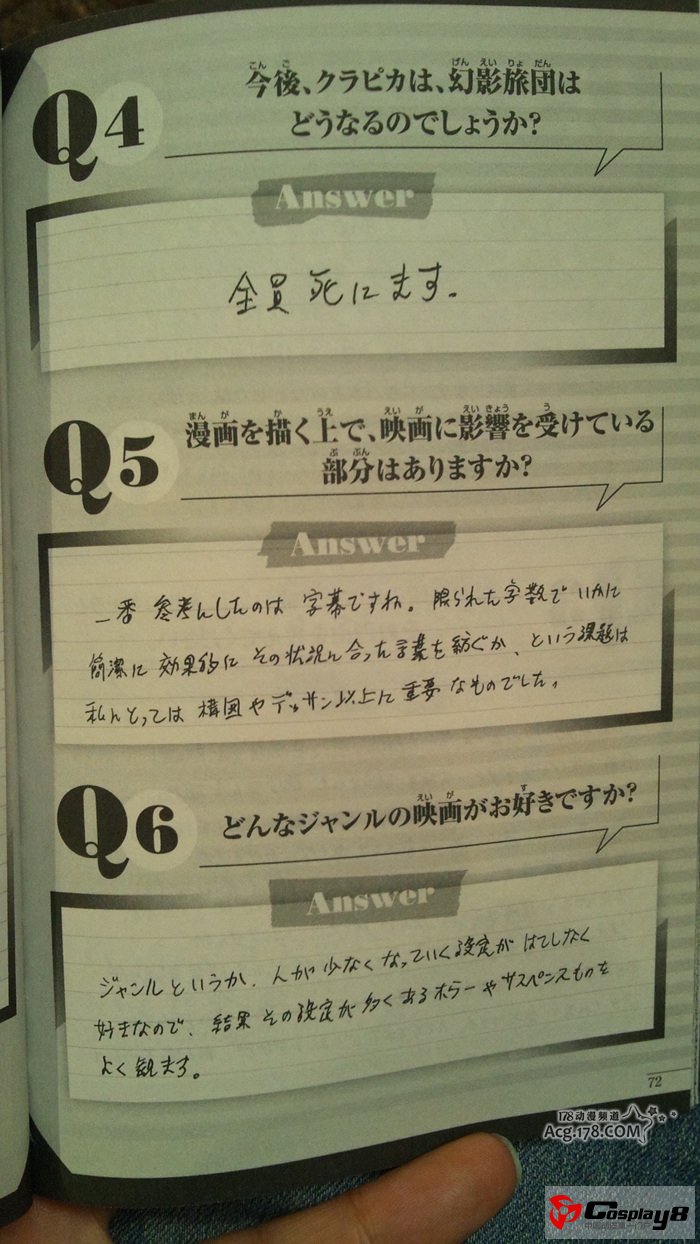 Q4
今後、クラピカは、幻影旅団は
どうなるのでしょうか?
Answer
全員 死にます。
Q5
漫画を描く上で、映画に影響を受けている
部分はありますか?
Answer
一番 参考にしたのは 字幕ですね。限られた字数で いかに
簡潔に 効果的に その状況に合った言葉を紡ぐか、という課題は
私にとっては 構図やデッサン以上に重要なものでした。
Q6
どんなジャンルの映画がお好きですか?
Answer
ジャンルというか、人が少なくなっていく設定が はてしなく
好きなので、結果 その設定が多くあるホラーやサスペンスものを
よく観ます。
72
178动漫频道
Acg.178.COM
Cosplay8